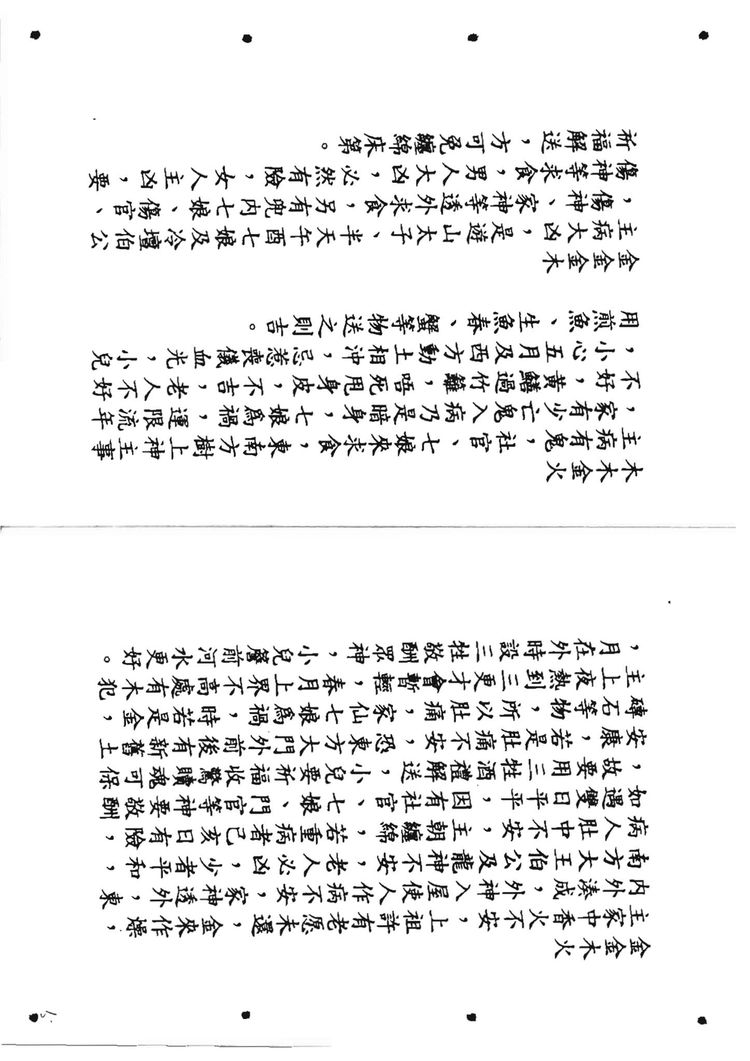 金木火
主家中香火不安，上祖許有老愿未還，金來作燥，
內外湊成，外神入屋使人作病不安，家神透外，東
南方大王伯公及龍神不安，老人必凶，少者平和，
病人肚中不安，主朝纏綿，若重病者己亥日有險，
如遇雙日平平，因有社官、七娘、門官等神要敬酬
故要用三牲酒禮解送，小兒要祈福收驚贖魂可保
安康，若是肚痛不安，恐東方大門外前後有新舊土
磚石等物，所以肚痛，家仙七娘爲禍，時若是金，
主上夜熱到三更才會暫輕，春月上界不高處有木犯
，月在外時設三牲敬酬眾神，小兒簷前河水更好。
木金火
主病有鬼、社官、七娘來求食，東南方樹上神主事
，家有少亡鬼入病乃是暗身，七娘爲禍，運限流年
不好，黃鱔過竹籬，唔死甩身皮，不吉，老人不好
，小心五月及西方動土相沖，忌惹喪儀血光，小兒
用煎魚、生魚春、蟹等物送之則吉。
金金木
主病大凶，是遊山太子、半天午酉七娘及冷壇伯公
，傷神、家神等透外求食，另有兜內七娘、傷官、
傷神等求食，男人大凶，必然有險，女人主凶，要
祈福解送，方可免纏綿床第。